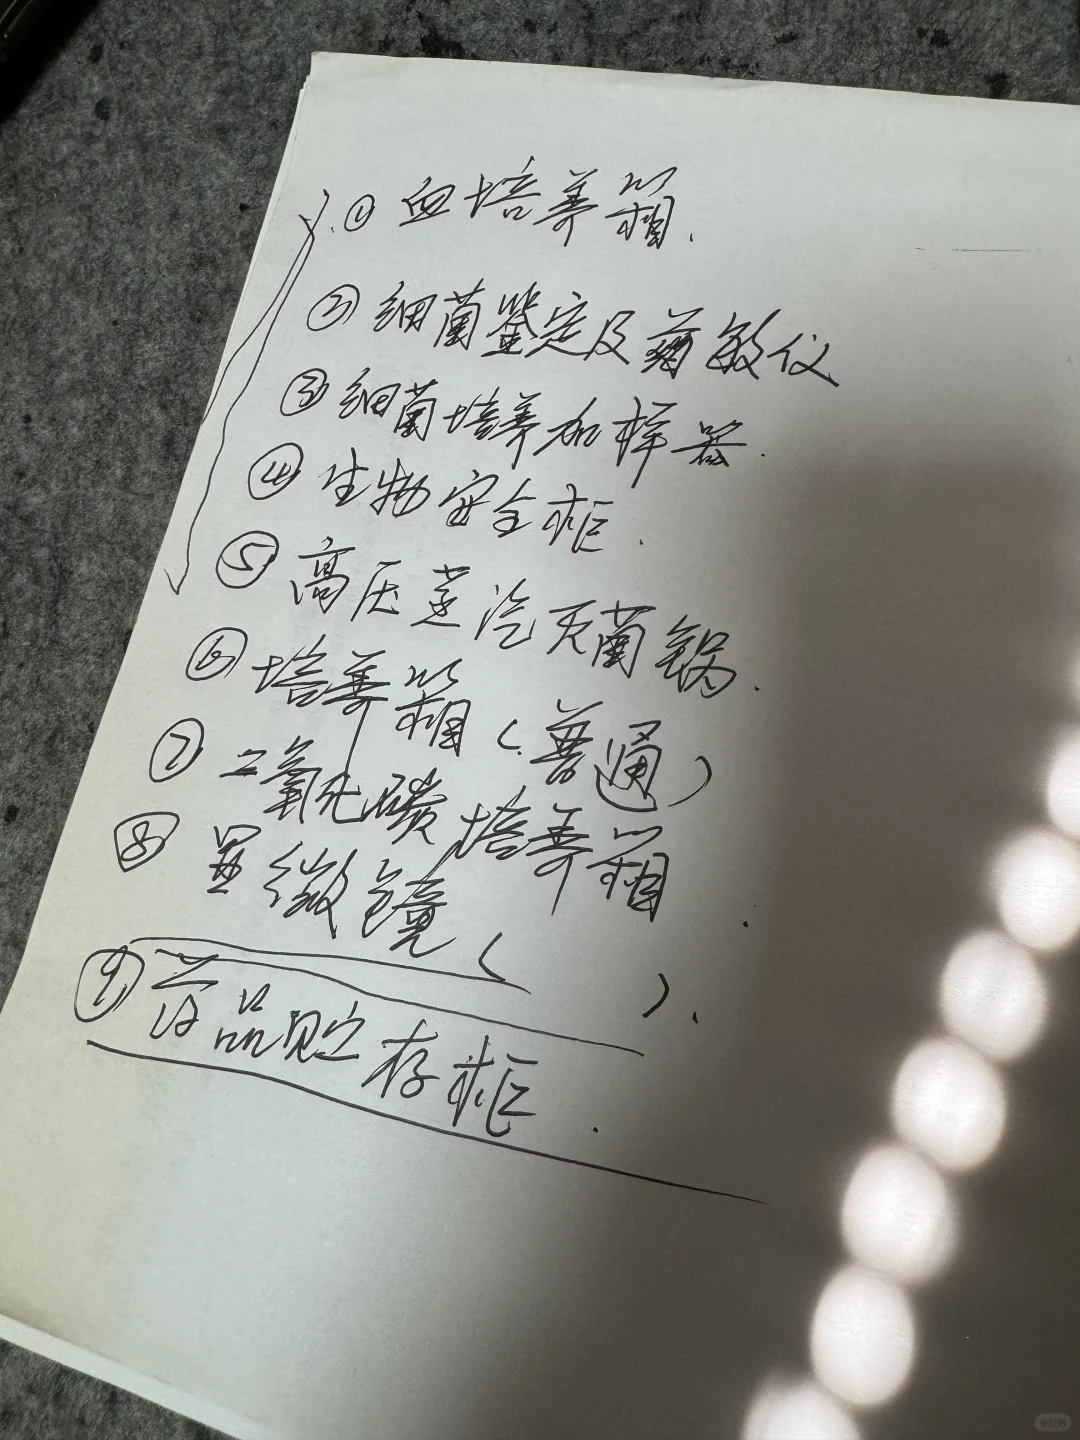 ① 血培养箱.
② 细菌鉴定及药敏仪
③ 细菌培养加样器.
④ 生物安全柜.
⑤ 高压蒸汽灭菌锅.
⑥ 培养箱(普通)
⑦ 二氧化碳培养箱.
⑧ 显微镜( ).
⑨ 药品贮存柜.
小红书